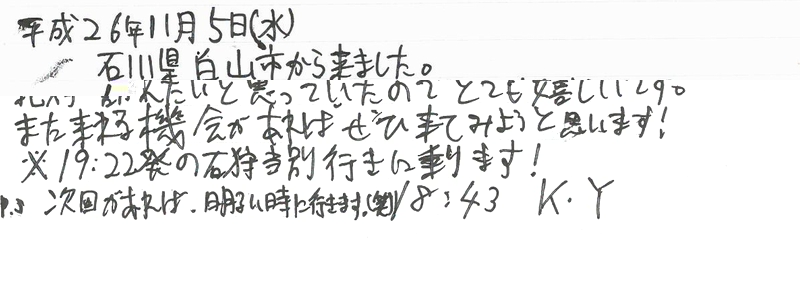 平成26年11月5日(水)
石川県白山市から来ました。
たいと思っていたのでとても嬉しいです。
また来れる機会があればぜひ来てみようと思います!
※19:22発の石狩当別行きに乗ります!
P.S 次回があれば、明るい時に行きます。(笑) 18:43 K.Y